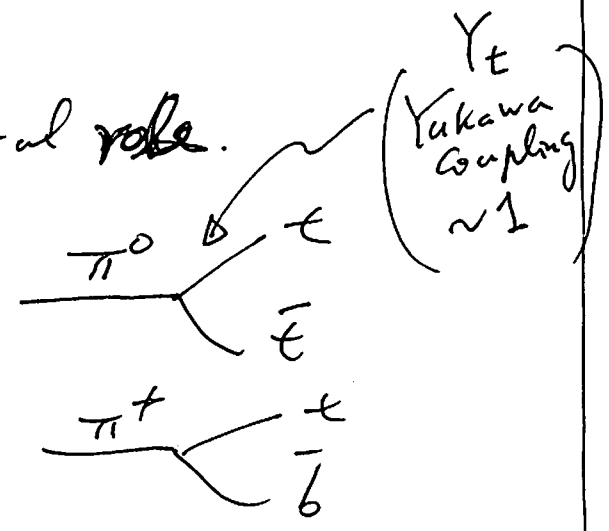 Y_t
-al role.
(Yukawa
Coupling
~1)
π⁰ t
t̄
π⁺ t
b̄